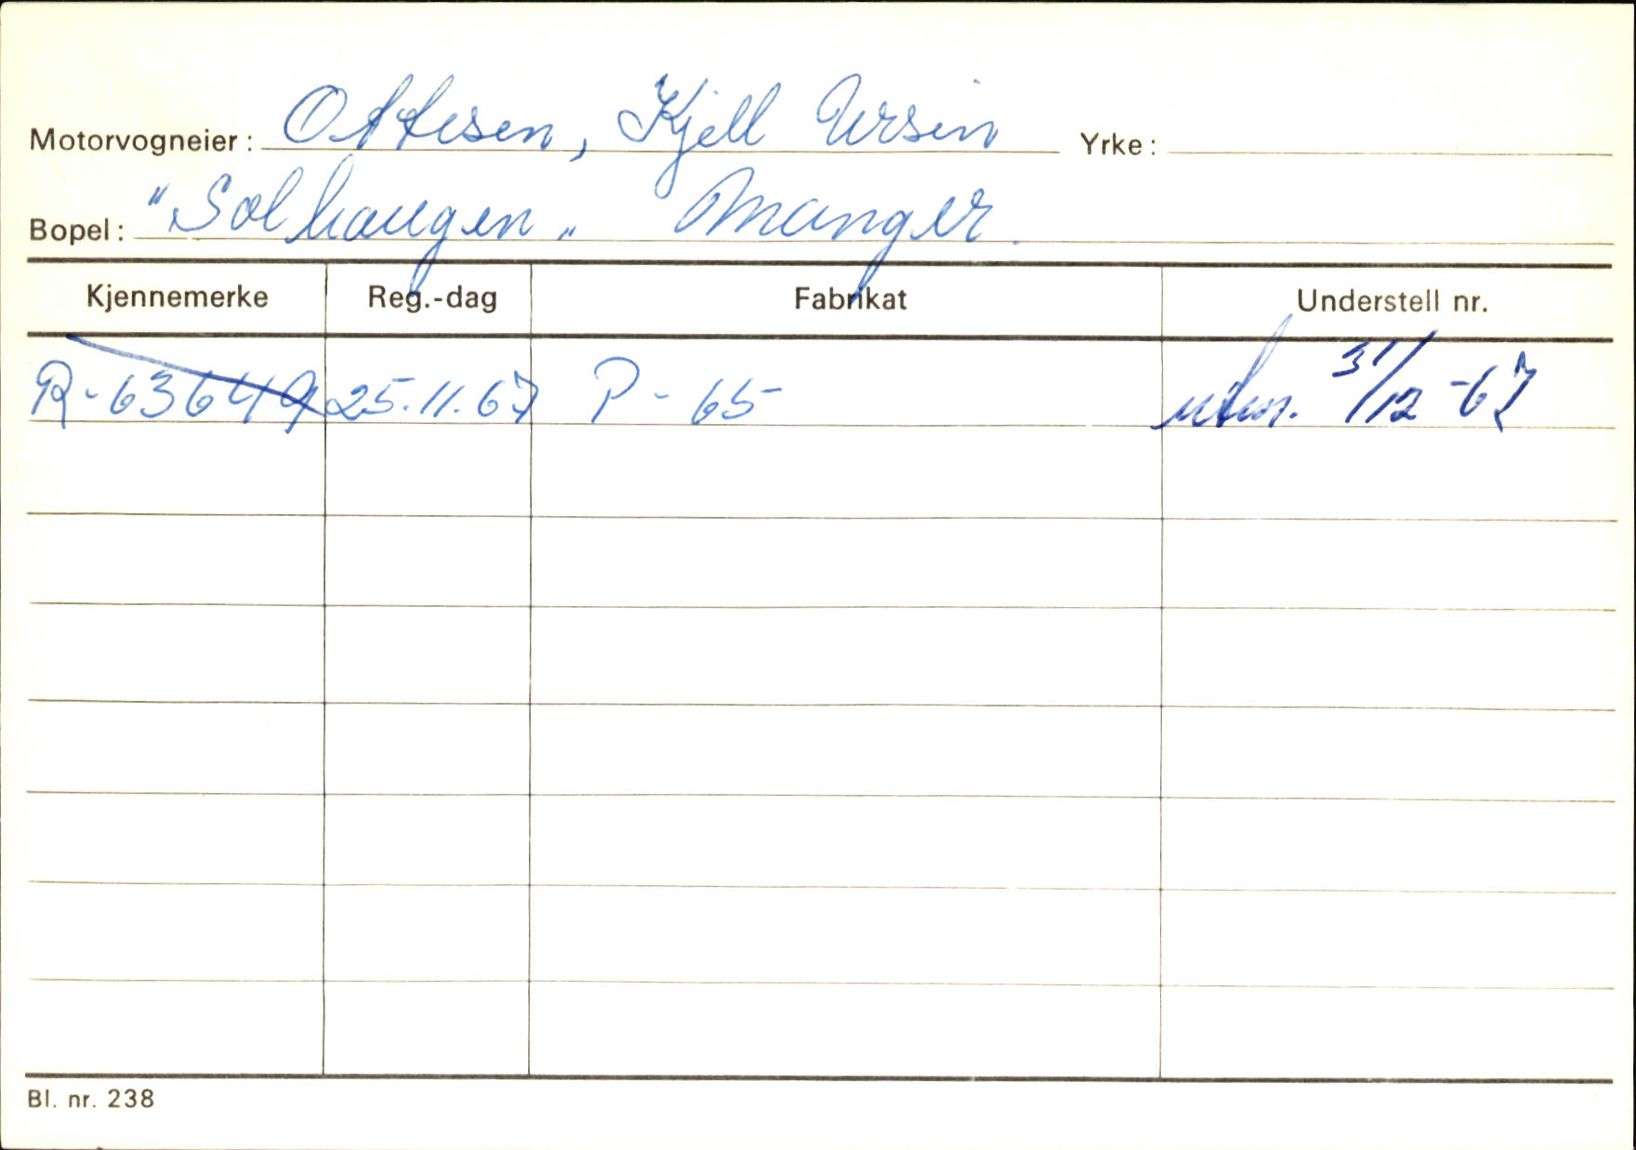 Motorvogneier: Ottesen, Kjell Ursin Yrke:
Bopel: "Solhaugen" Manger.
Kjennemerke Reg.-dag Fabrikat Understell nr.
R-63649 25.11.67 P-65 utm. 31/12-67
Bl. nr. 238